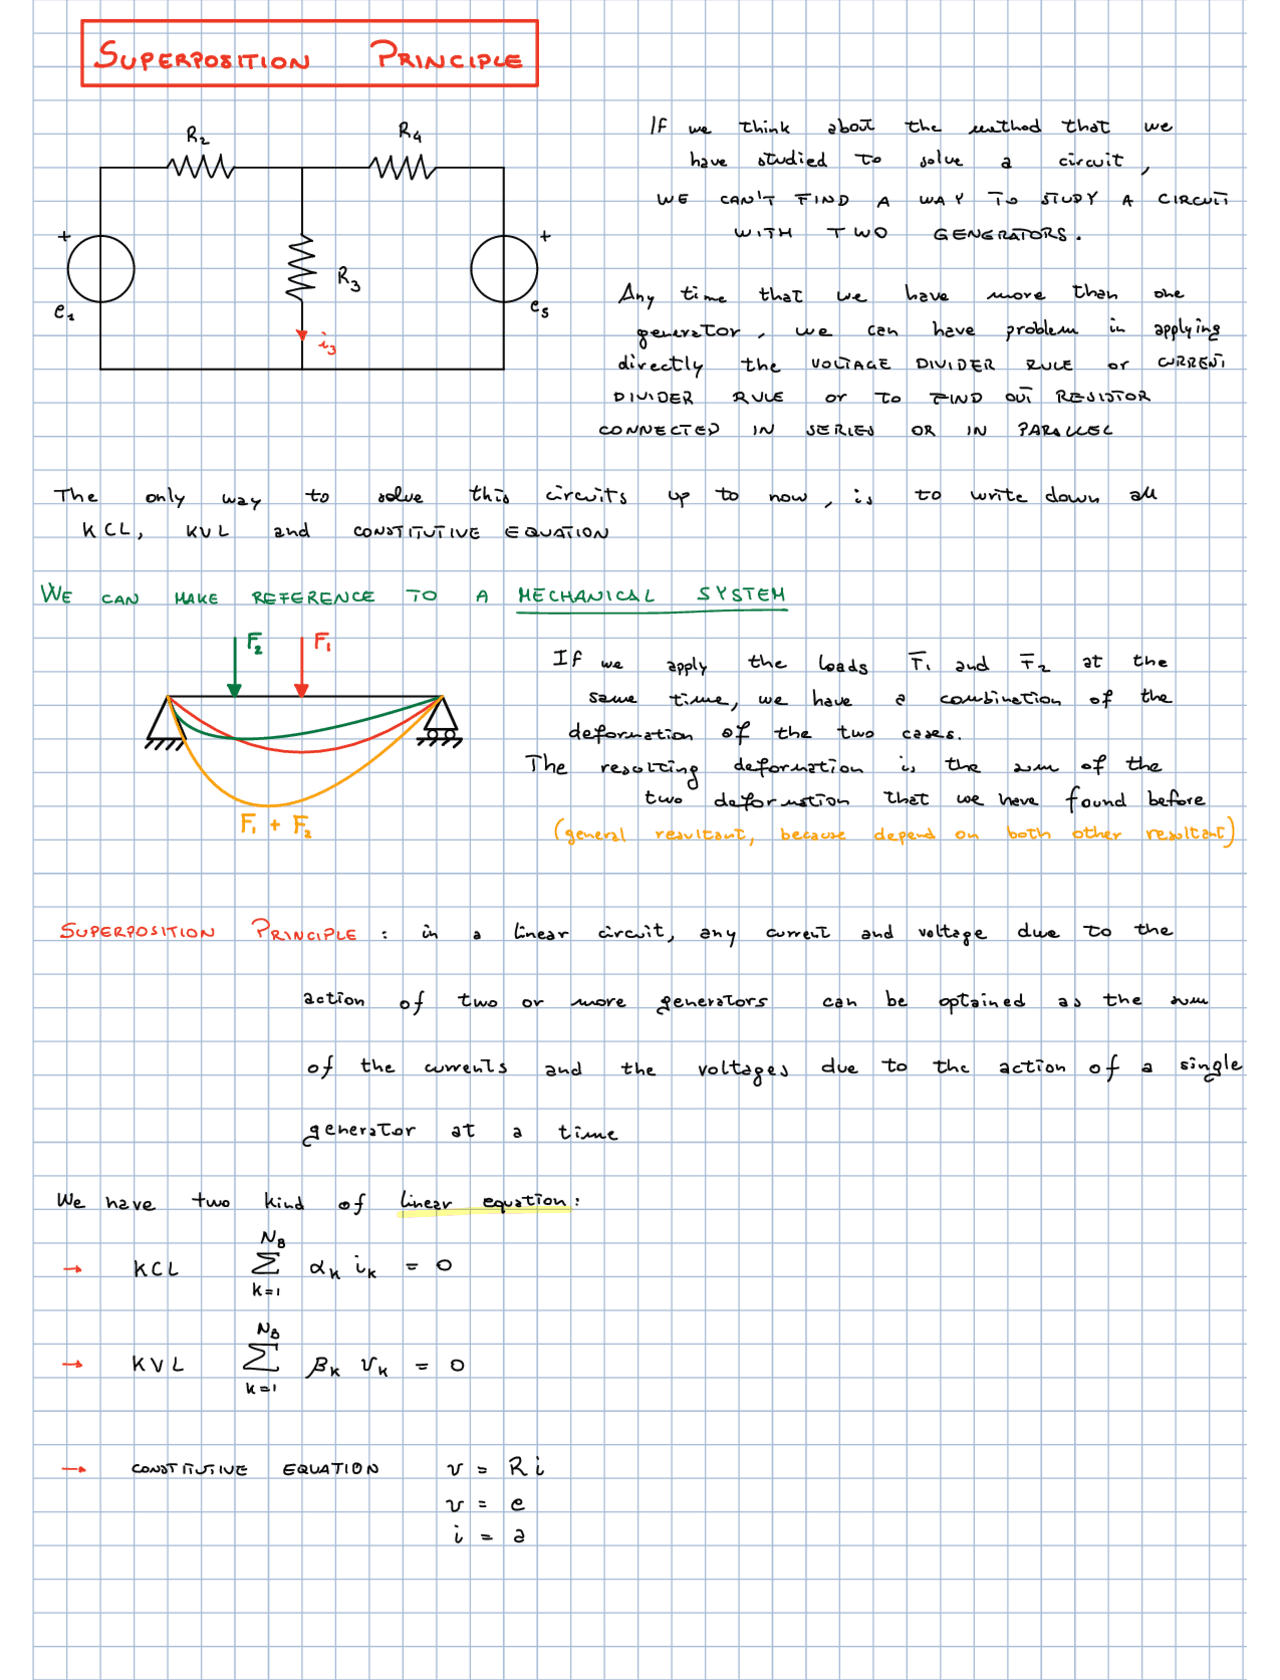 SUPERPOSITION PRINCIPLE
R₂
R₄
+
e₁
R₃
i₃
+
e₅
If we think about the method that we
have studied to solve a circuit,
WE CAN'T FIND A WAY TO STUDY A CIRCUIT
WITH TWO GENERATORS.
Any time that we have more than one
generator, we can have problem in applying
directly the VOLTAGE DIVIDER RULE or CURRENT
DIVIDER RULE or TO FIND OUT RESISTOR
CONNECTED IN SERIES OR IN PARALLEL
The only way to solve this circuits up to now, is to write down all
KCL, KVL and CONSTITUTIVE EQUATION
WE CAN MAKE REFERENCE TO A MECHANICAL SYSTEM
F₂
F₁
F₁ + F₂
If we apply the loads F̅₁ and F̅₂ at the
same time, we have a combination of the
deformation of the two cases.
The resulting deformation is the sum of the
two deformation that we have found before
(general resultant, because depend on both other resultant)
SUPERPOSITION PRINCIPLE : in a linear circuit, any current and voltage due to the
action of two or more generators can be optained as the sum
of the currents and the voltages due to the action of a single
generator at a time
We have two kind of linear equation:
→ KCL ∑_{k=1}^{N_B} α_k i_k = 0
→ KVL ∑_{k=1}^{N_B} β_k v_k = 0
→ CONSTITUTIVE EQUATION v = Ri
v = e
i = a